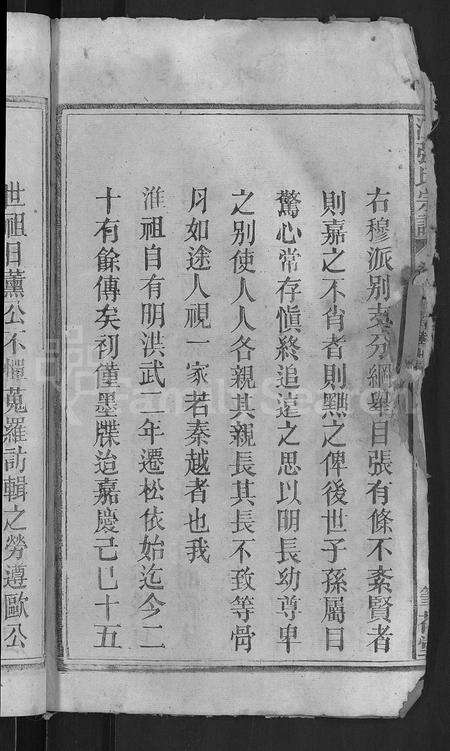 張氏宗譜
右穆派別支分綱舉目張有條不紊賢者
則嘉之不肖者則黜之俾後世子孫屬目
驚心常存慎終追遠之思以明長幼尊卑
之別使人人各親其親長其長不致等骨
月如途人視一家若秦越者也我
淮祖自有明洪武二年遷松依始迄今二
十有餘傳矣初僅墨牒迨嘉慶己巳十五
世祖日薰公不憚蒐羅訪輯之勞遵歐公
FamilySearch